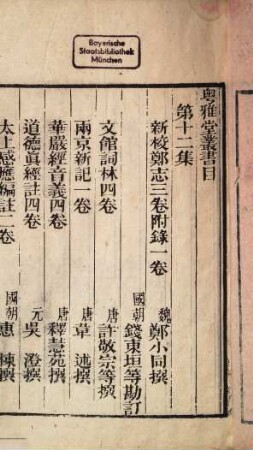 Bayerische
Staatsbibliothek
München
粵雅堂叢書目
第十二集
新校鄭志三卷附錄一卷 魏 鄭小同撰
國朝 錢東垣等勘訂
文館詞林四卷 唐 許敬宗等撰
兩京新記一卷 唐 韋述撰
華嚴經音義四卷 唐 釋慧苑撰
道德眞經註四卷 元 吳澄撰
太上感應編註二卷 國朝 惠棟撰